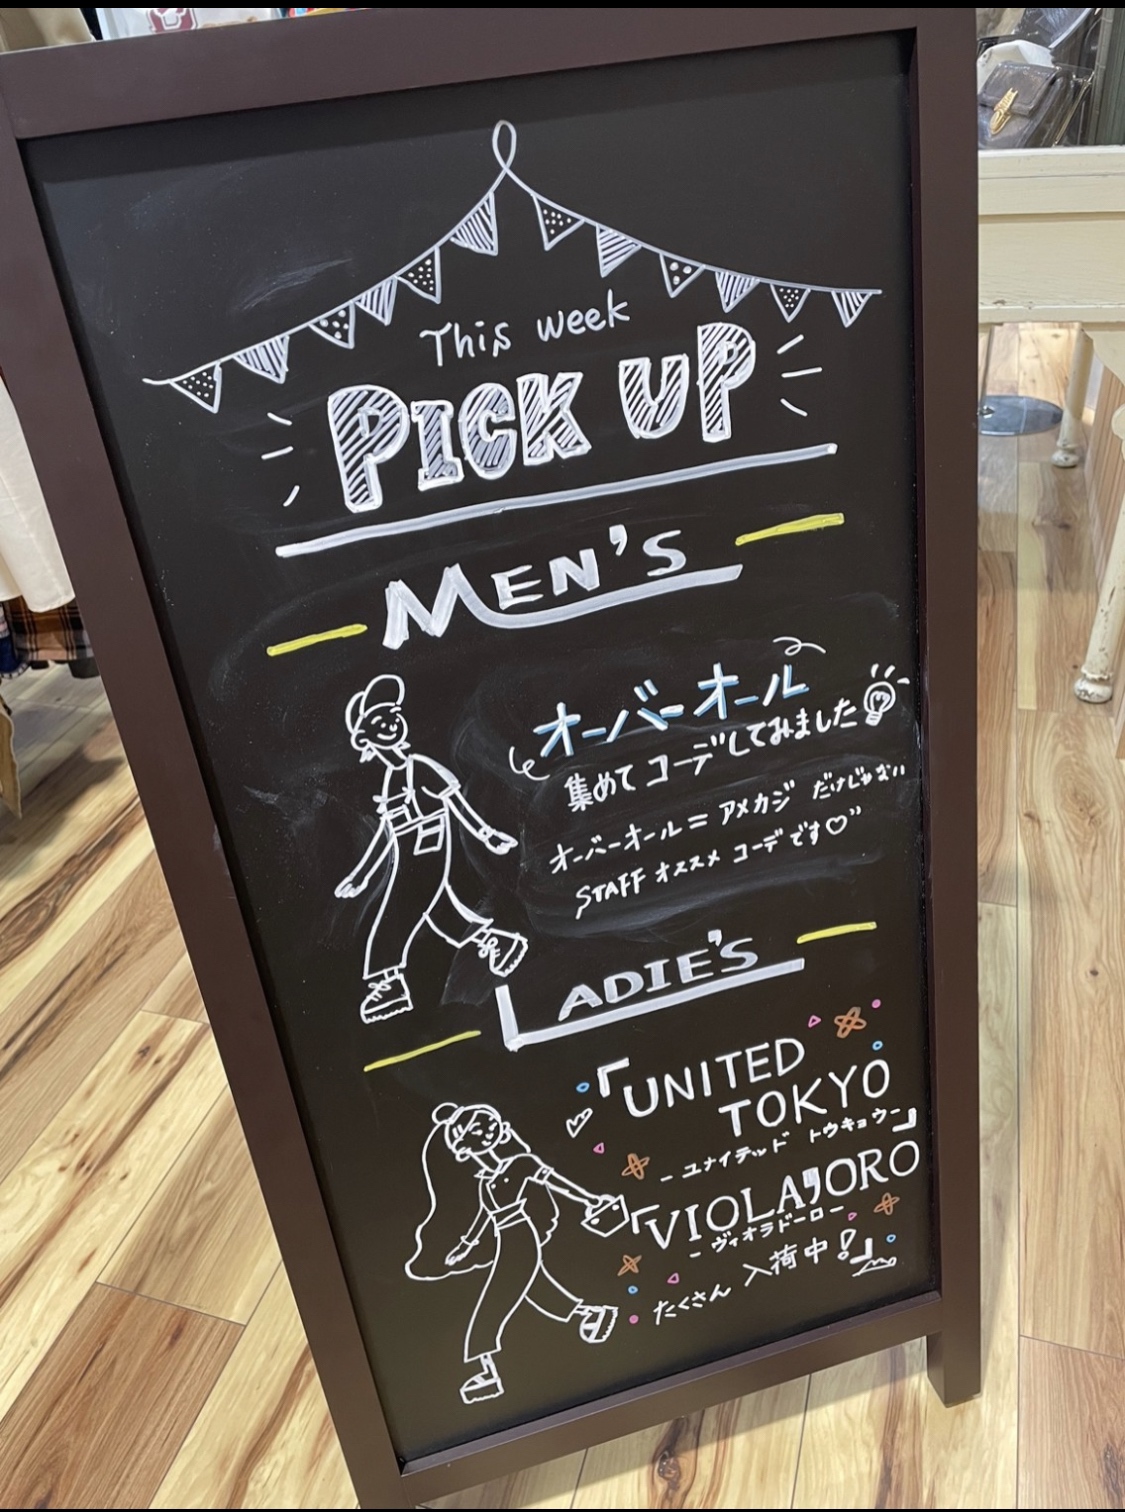 This week
PICK UP
MEN'S
オーバーオール
集めて コーデしてみました
オーバーオール = アメカジ だけじゃない
STAFF オススメ コーデです♡"
LADIE'S
「UNITED
TOKYO
- ユナイテッド トウキョウ-」
「VIOLA'D'ORO
- ヴィオラドーロ -
たくさん 入荷中!」